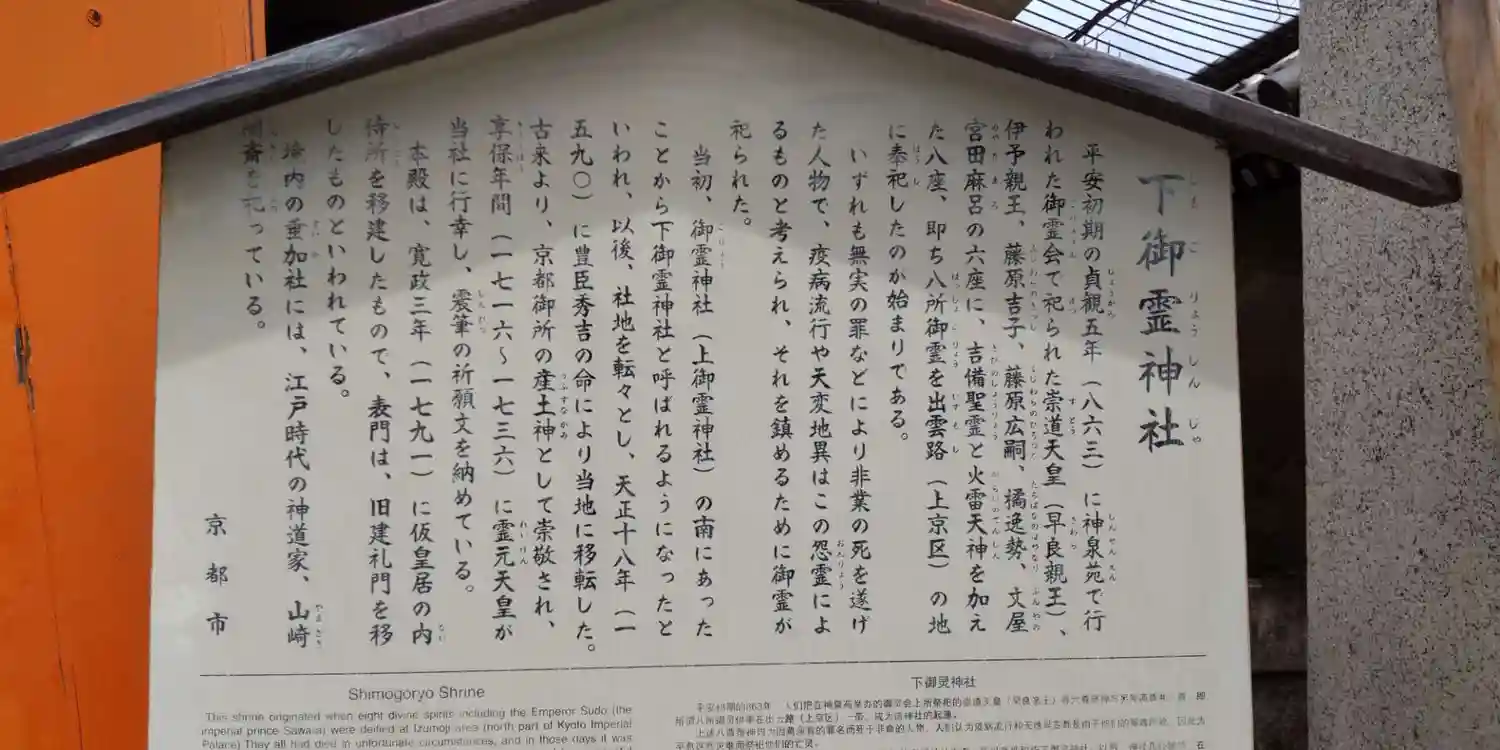 下御霊神社
平安初期の貞観五年（八六三）に神泉苑で行
われた御霊会で祀られた崇道天皇（早良親王）、
伊予親王、藤原吉子、藤原広嗣、橘逸勢、文屋
宮田麻呂の六座に、吉備聖霊と火雷天神を加え
た八座、即ち八所御霊を出雲路（上京区）の地
に奉祀したのが始まりである。
いずれも無実の罪などにより非業の死を遂げ
た人物で、疫病流行や天変地異はこの怨霊によ
るものと考えられ、それを鎮めるために御霊が
祀られた。
当初、御霊神社（上御霊神社）の南にあった
ことから下御霊神社と呼ばれるようになったと
いわれ、以後、社地を転々とし、天正十八年（一
五九〇）に豊臣秀吉の命により当地に移転した。
古来より、京都御所の産土神として崇敬され、
享保年間（一七一六～一七三六）に霊元天皇が
当社に行幸し、震筆の祈願文を納めている。
本殿は、寛政三年（一七九一）に仮皇居の内
侍所を移建したもので、表門は、旧建礼門を移
したものといわれている。
境内の垂加社には、江戸時代の神道家、山崎
闇斎を祀っている。
京都市
Shimogoryo Shrine
This shrine originated when eight divine spirits including the Emperor Sudo (the
imperial prince Sawara) were deified at Izumoji area (north part of Kyoto Imperial
Palace) They all had died in unfortunate circumstances, and in those days it was
下御灵神社